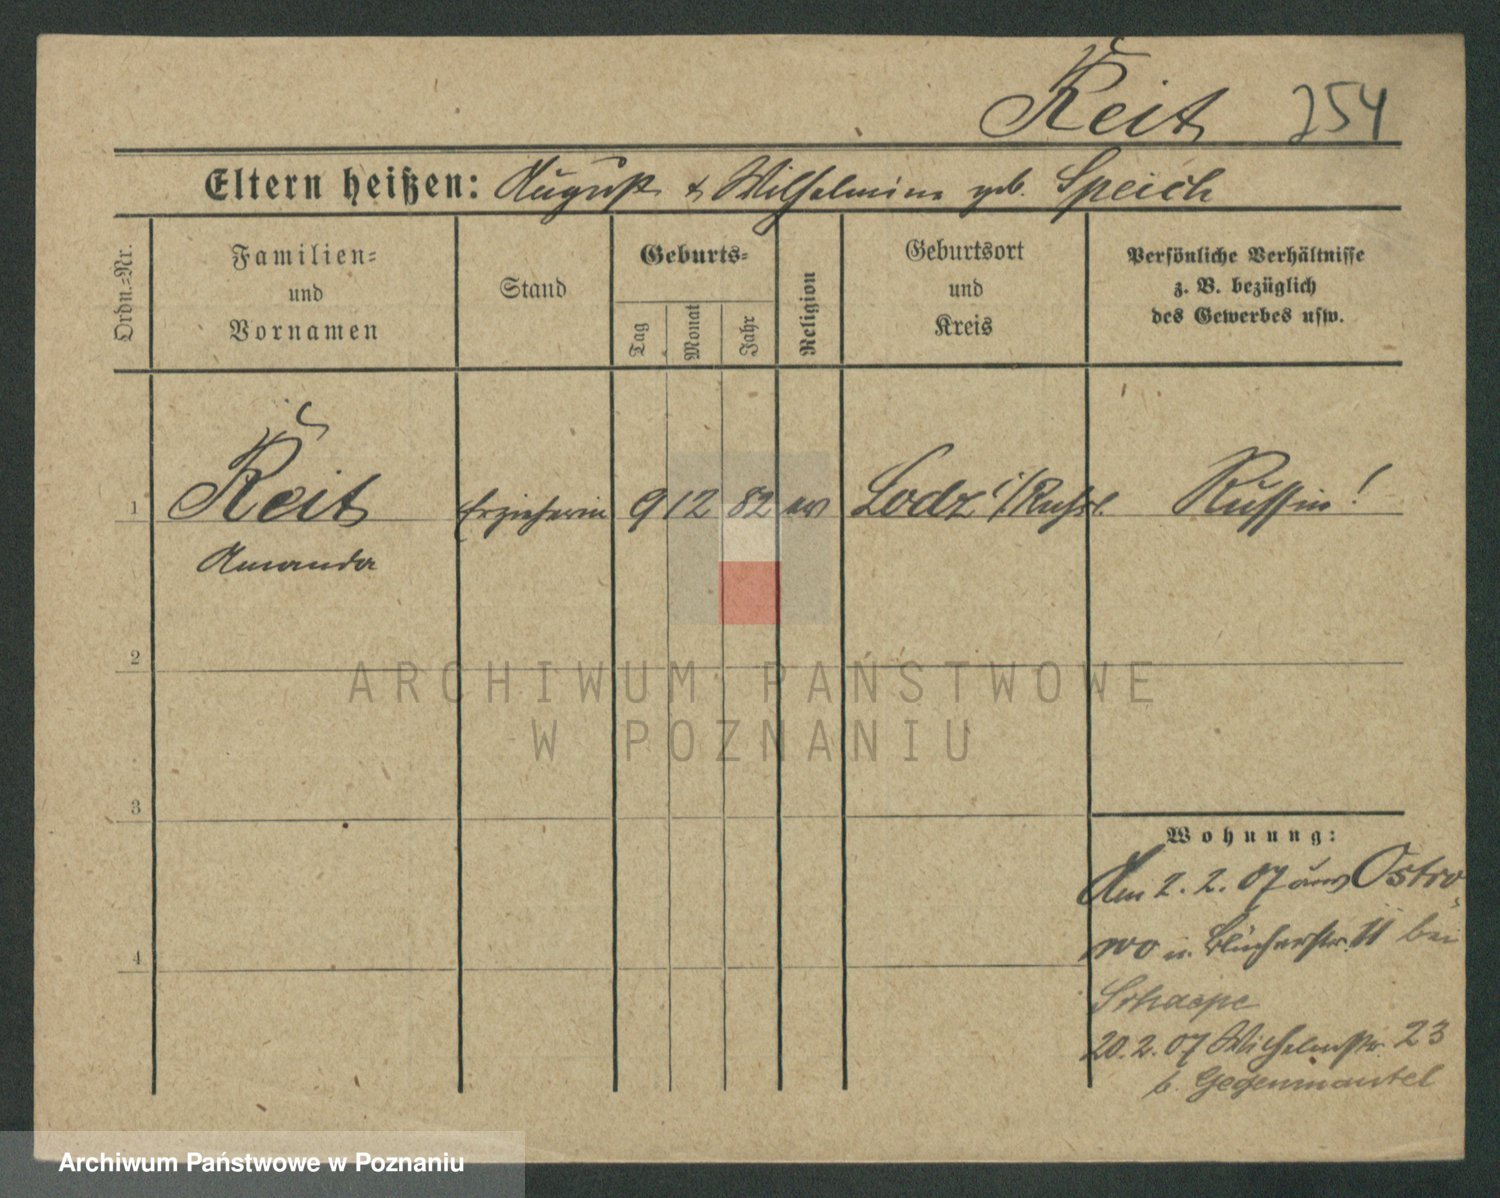 Reit 254
Eltern heißen: August & Wilhelmine geb. Speich
Ordn.=Nr.
Familien=
und
Vornamen
Stand
Geburts=
Tag
Monat
Jahr
Religion
Geburtsort
und
Kreis
Persönliche Verhältnisse
z. B. bezüglich
des Gewerbes usw.
1 Reit Erzieherin 9 12 82 ev Lodz i/Russl. Russin!
Amanda
2
3
4
Wohnung:
Am 2. 2. 07 aus Ostro-
wo n. Blücherstr. 11 bei
Schaepe
20. 2. 07 Wilhelmstr. 23
b. Gegenmantel
ARCHIWUM PAŃSTWOWE
W POZNANIU
Archiwum Państwowe w Poznaniu